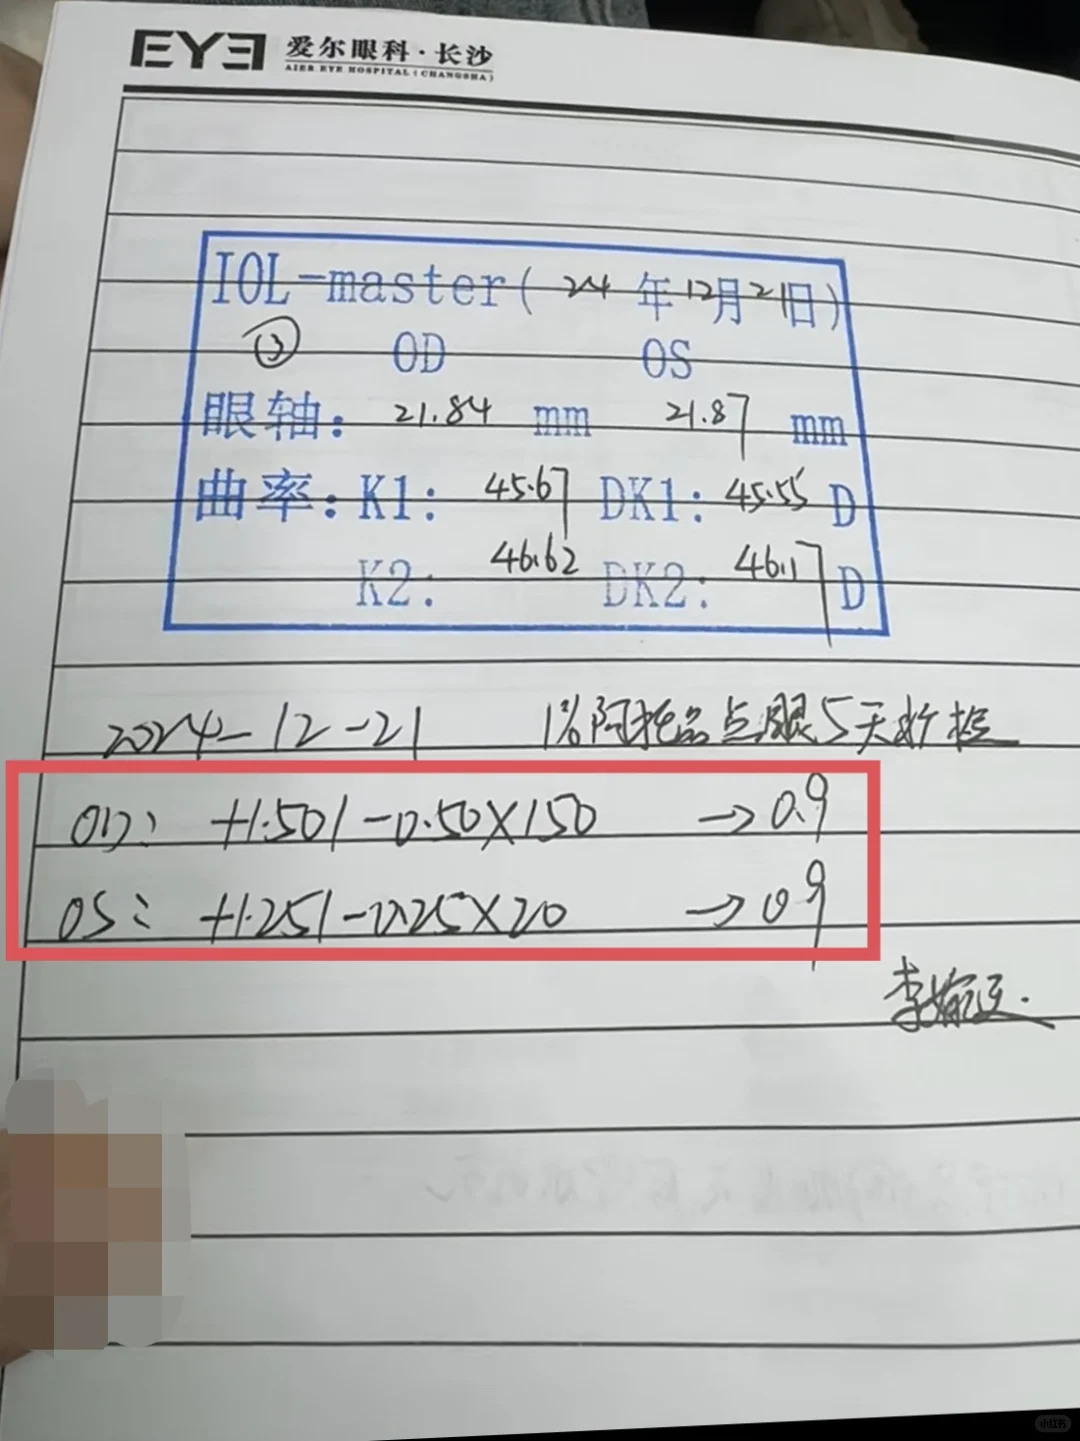 EYE 爱尔眼科·长沙
AIER EYE HOSPITAL (CHANGSHA)
IOL-master( 24 年 12月 21日)
③ OD OS
眼轴: 21.84 mm 21.87 mm
曲率: K1: 45.67 DK1: 45.55 D
K2: 46.62 DK2: 46.17 D
2024-12-21 1%阿托品点眼5天
OD: +1.50/-0.50×150 →0.9
OS: +1.25/-0.25×20 →0.9
小红书